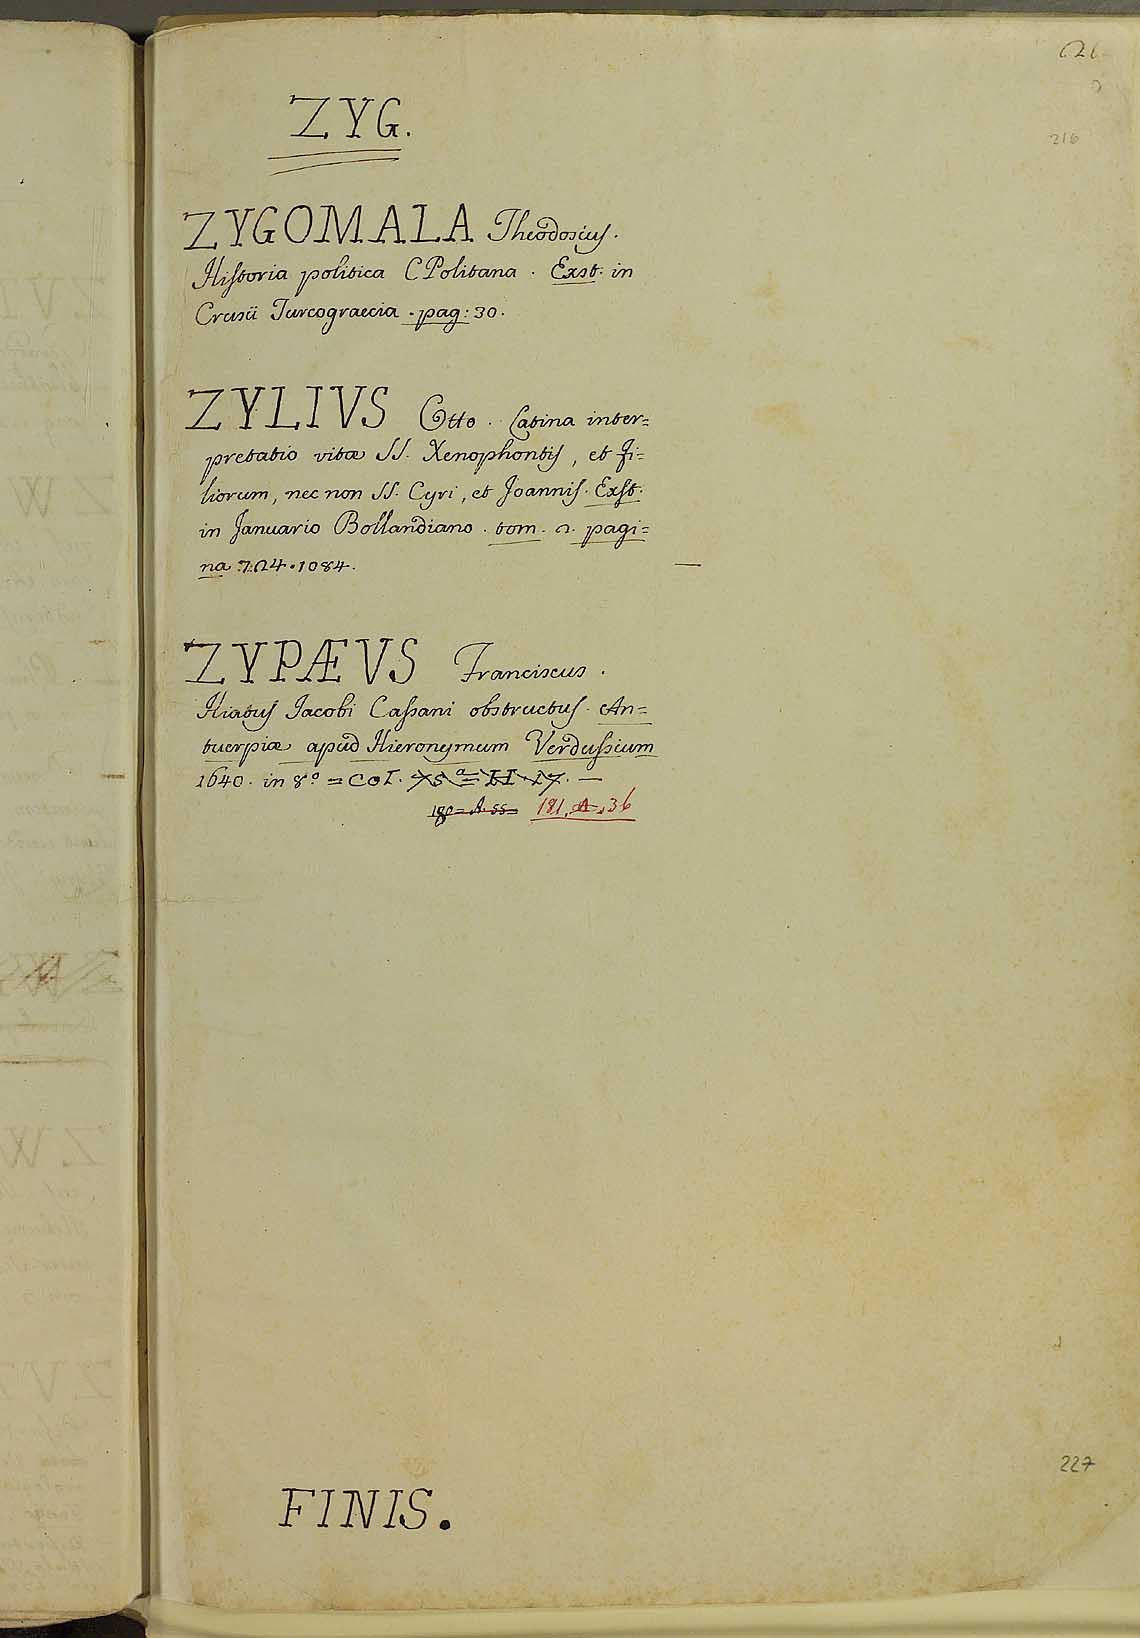 216
ZYG.
ZYGOMALA Theodosius.
Historia politica CPolitana. Exst. in
Crusii Turcograecia. pag: 30.
ZYLIVS Otto. Latina inter=
pretatio vitae SS. Xenophontis, et Fi=
liorum, nec non SS. Cyri, et Joannis. Exst.
in Januario Bollandiano. tom. 2. pagi=
na 724. 1084. —
ZYPÆVS Franciscus.
Hiatus Jacobi Cassani obstructus. An=
tuerpiæ apud Hieronymum Verdussium
1640. in 8° = COI. 75ª = H. 17. —
180 = A. 55 = 181. A. 36
227
FINIS.